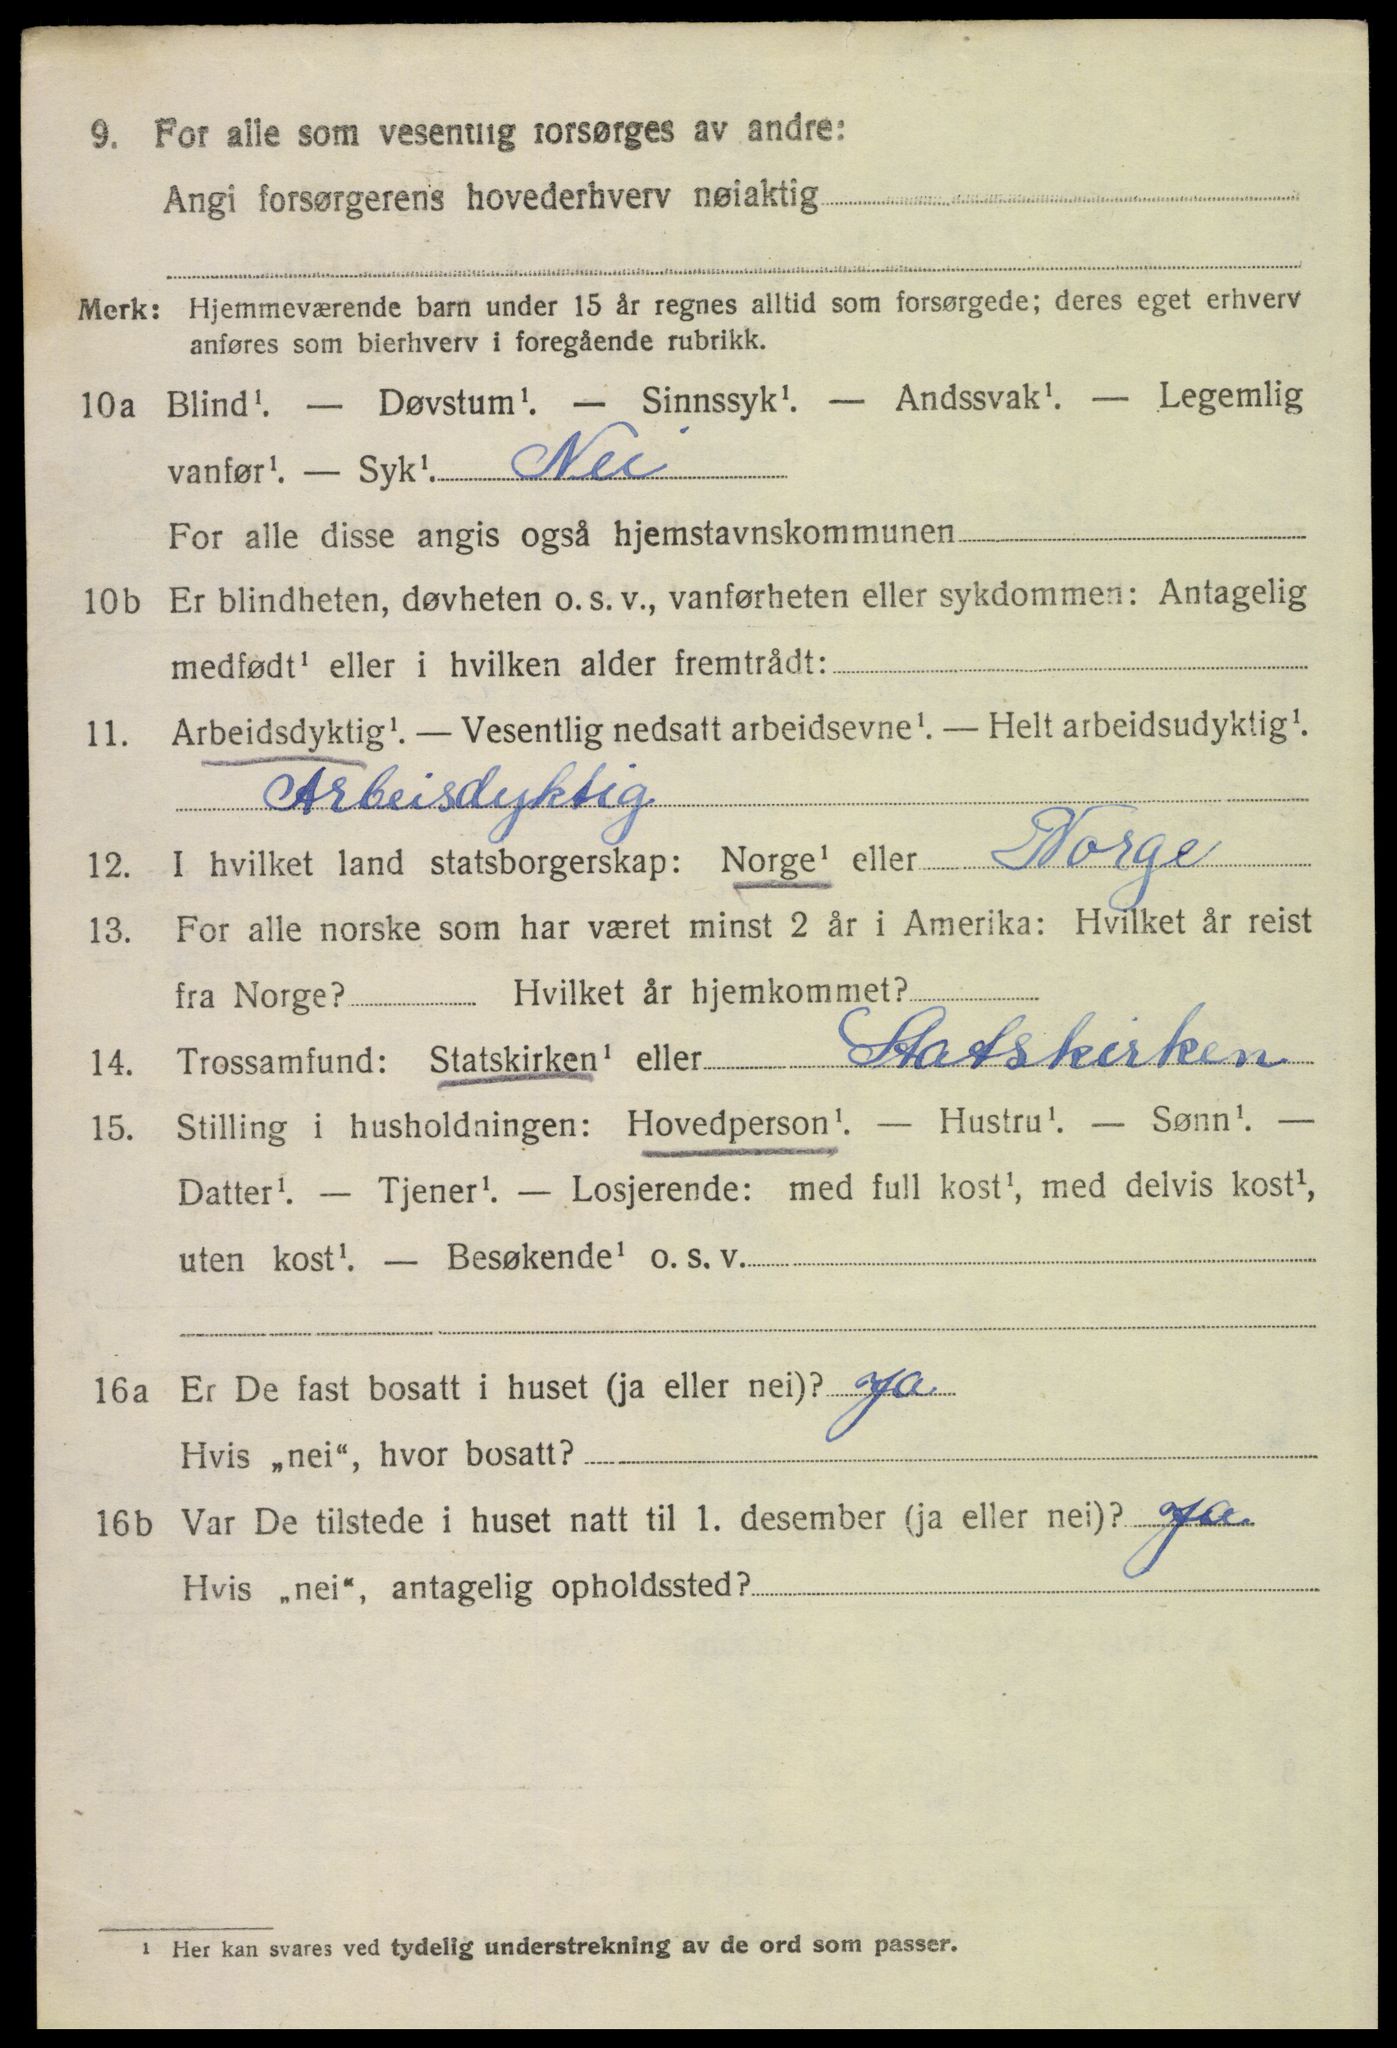 9. For alle som vesentlig forsørges av andre:
Angi forsørgerens hovederhverv nøiaktig
Merk: Hjemmeværende barn under 15 år regnes alltid som forsørgede; deres eget erhverv
anføres som bierhverv i foregående rubrikk.
10a Blind¹. — Døvstum¹. — Sinnssyk¹. — Andssvak¹. — Legemlig
vanfør¹. — Syk¹. Nei
For alle disse angis også hjemstavnskommunen
10b Er blindheten, døvheten o. s. v., vanførheten eller sykdommen: Antagelig
medfødt¹ eller i hvilken alder fremtrådt:
11. Arbeidsdyktig¹. — Vesentlig nedsatt arbeidsevne¹. — Helt arbeidsudyktig¹.
Arbeisdyktig
12. I hvilket land statsborgerskap: Norge¹ eller Norge
13. For alle norske som har været minst 2 år i Amerika: Hvilket år reist
fra Norge? Hvilket år hjemkommet?
14. Trossamfund: Statskirken¹ eller Statskirken
15. Stilling i husholdningen: Hovedperson¹. — Hustru¹. — Sønn¹. —
Datter¹. — Tjener¹. — Losjerende: med full kost¹, med delvis kost¹,
uten kost¹. — Besøkende¹ o. s. v.
16a Er De fast bosatt i huset (ja eller nei)? ja
Hvis „nei“, hvor bosatt?
16b Var De tilstede i huset natt til 1. desember (ja eller nei)? ja.
Hvis „nei“, antagelig opholdssted?
¹ Her kan svares ved tydelig understrekning av de ord som passer.